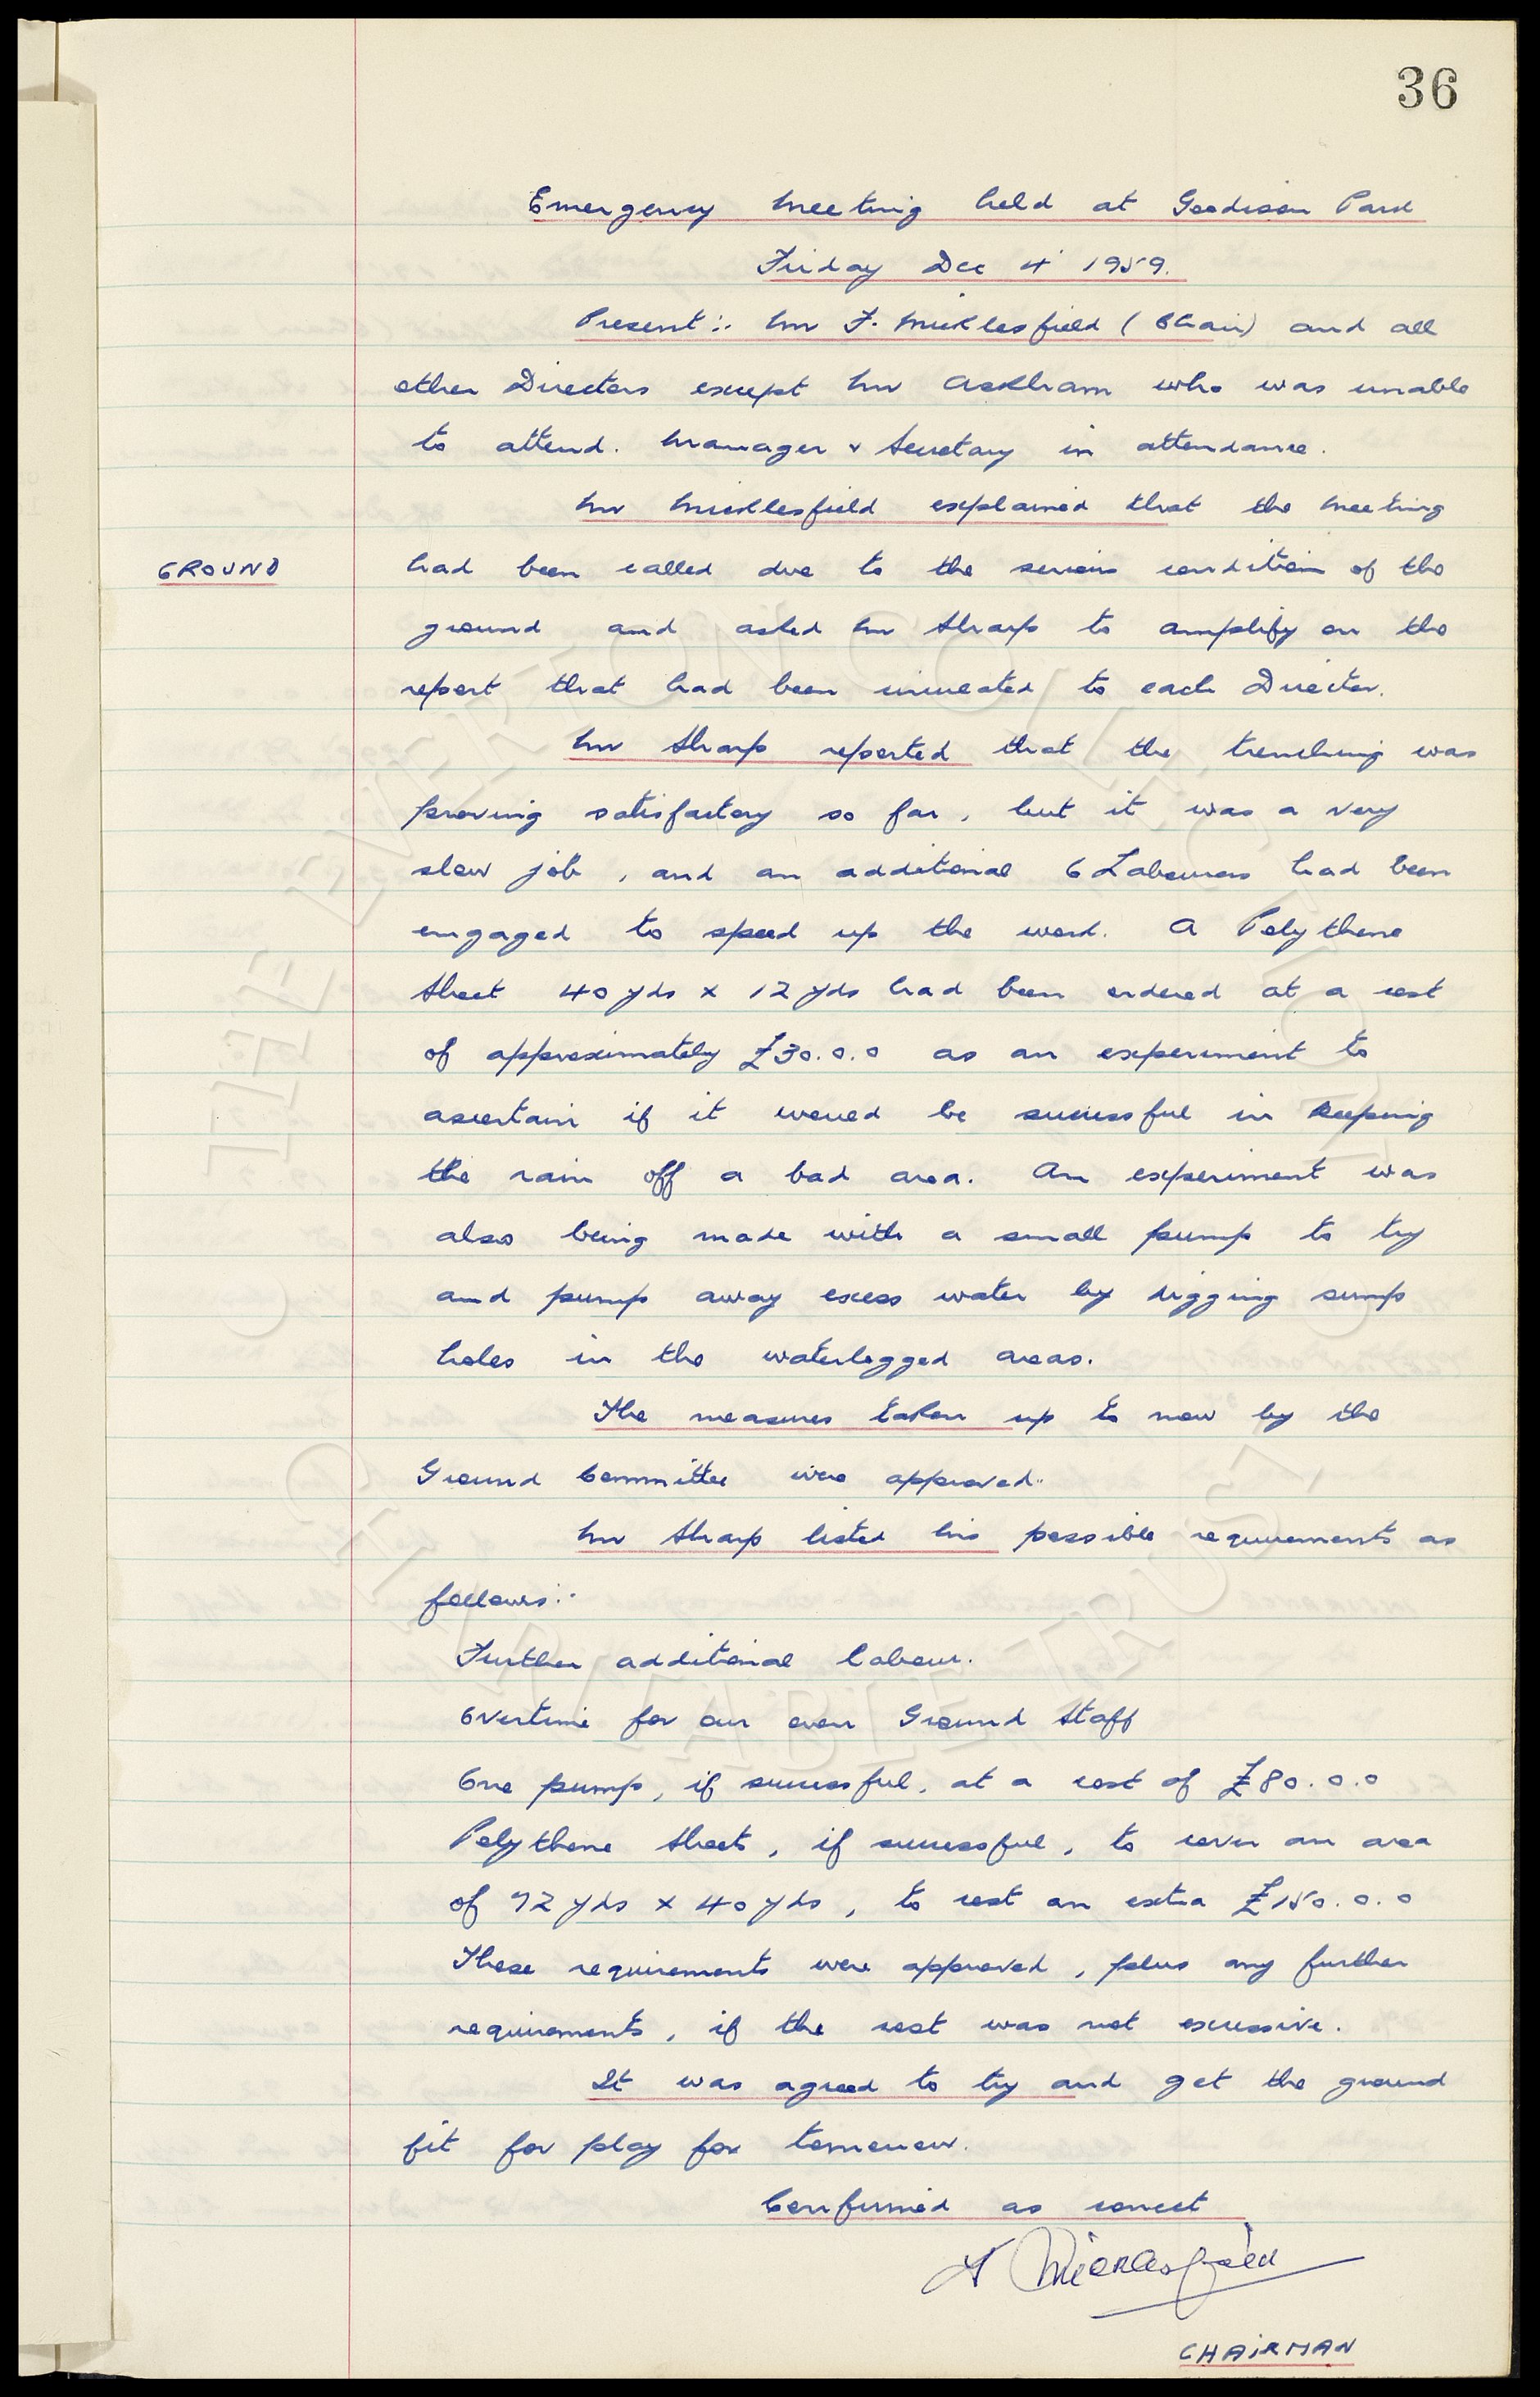 36
Emergency Meeting held at Goodison Park
Friday Dec 4 1959.
Present:- Mr F. Micklesfield (Chair) and all
other Directors except Mr Askham who was unable
to attend. Manager & Secretary in attendance.
Mr Micklesfield explained that the Meeting
GROUND had been called due to the serious condition of the
ground and asked Mr Sharp to amplify on the
report that had been circulated to each Director.
Mr Sharp reported that the trenching was
proving satisfactory so far, but it was a very
slow job, and an additional 6 Labourers had been
engaged to speed up the work. A Polythene
Sheet 40 yds x 12 yds had been ordered at a cost
of approximately £30.0.0 as an experiment to
ascertain if it would be successful in keeping
the rain off a bad area. An experiment was
also being made with a small pump to try
and pump away excess water by digging sump
holes in the waterlogged areas.
The measures taken up to now by the
Ground Committee were approved.
Mr Sharp listed his possible requirements as
follows:-
Further additional labour.
Overtime for our own Ground Staff
One pump, if successful, at a cost of £80.0.0
Polythene Sheets, if successful, to cover an area
of 72 yds x 40 yds, to cost an extra £150.0.0
These requirements were approved, plus any further
requirements, if the cost was not excessive.
It was agreed to try and get the ground
fit for play for tomorrow.
Confirmed as correct
F Micklesfield
CHAIRMAN